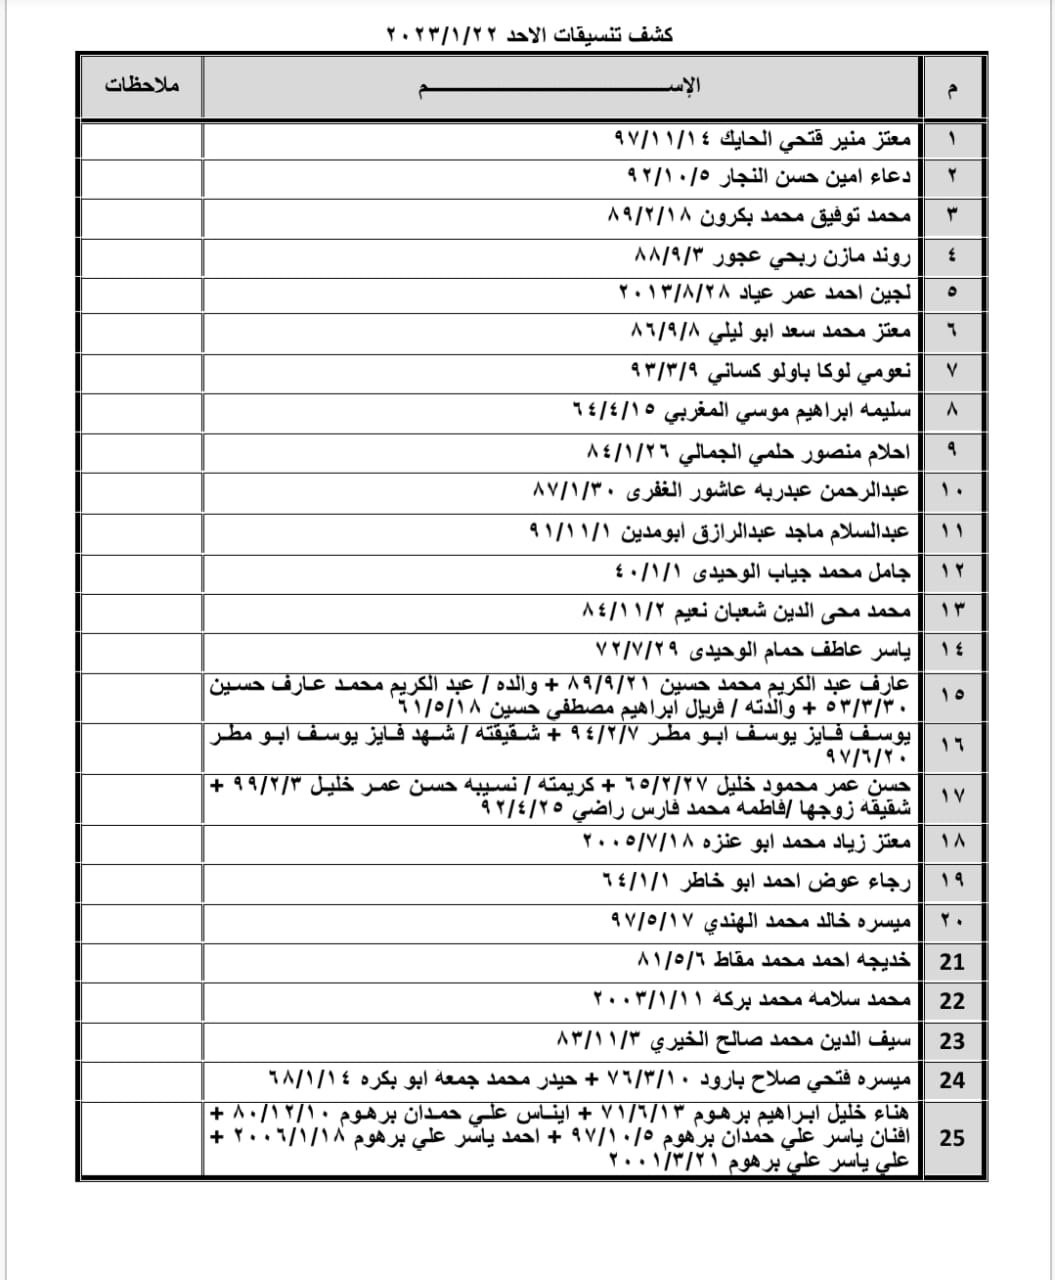 كشف تنسيقات الاحد ٢٠٢٣/١/٢٢
م الإســـــم ملاحظات
١ معتز منير فتحي الحايك ٩٧/١١/١٤
٢ دعاء امين حسن النجار ٩٢/١٠/٥
٣ محمد توفيق محمد بكرون ٨٩/٢/١٨
٤ روند مازن ربحي عجور ٨٨/٩/٣
٥ لجين احمد عمر عياد ٢٠١٣/٨/٢٨
٦ معتز محمد سعد ابو ليلي ٨٦/٩/٨
٧ نعومي لوكا باولو كساني ٩٣/٣/٩
٨ سليمه ابراهيم موسي المغربي ٦٤/٤/١٥
٩ احلام منصور حلمي الجمالي ٨٤/١/٢٦
١٠ عبدالرحمن عبدربه عاشور الغفرى ٨٧/١/٣٠
١١ عبدالسلام ماجد عبدالرازق ابومدين ٩١/١١/١
١٢ جامل محمد جياب الوحيدى ٤٠/١/١
١٣ محمد محى الدين شعبان نعيم ٨٤/١١/٢
١٤ ياسر عاطف حمام الوحيدى ٧٢/٧/٢٩
١٥ عارف عبد الكريم محمد حسين ٨٩/٩/٢١ + والده / عبد الكريم محمد عارف حسين
٥٣/٣/٣٠ + والدته / فريال ابراهيم مصطفي حسين ٦١/٥/١٨
١٦ يوسف فايز يوسف ابو مطر ٩٤/٢/٧ + شقيقته / شهد فايز يوسف ابو مطر
٩٧/٦/٢٠
١٧ حسن عمر محمود خليل ٦٥/٢/٢٧ + كريمته / نسيبه حسن عمر خليل ٩٩/٢/٣ +
شقيقة زوجها /فاطمه محمد فارس راضي ٩٢/٤/٢٥
١٨ معتز زياد محمد ابو عنزه ٢٠٠٥/٧/١٨
١٩ رجاء عوض احمد ابو خاطر ٦٤/١/١
٢٠ ميسره خالد محمد الهندي ٩٧/٥/١٧
21 خديجه احمد محمد مقاط ٨١/٥/٦
22 محمد سلامة محمد بركة ٢٠٠٣/١/١١
23 سيف الدين محمد صالح الخيري ٨٣/١١/٣
24 ميسره فتحي صلاح بارود ٧٦/٣/١٠ + حيدر محمد جمعة ابو بكره ٦٨/١/١٤
25 هناء خليل ابراهيم برهوم ٧١/٦/١٣ + ايناس علي حمدان برهوم ٨٠/١٢/١٠ +
افنان ياسر علي حمدان برهوم ٩٧/١٠/٥ + احمد ياسر علي برهوم ٢٠٠٦/١/١٨ +
علي ياسر علي برهوم ٢٠٠١/٣/٢١